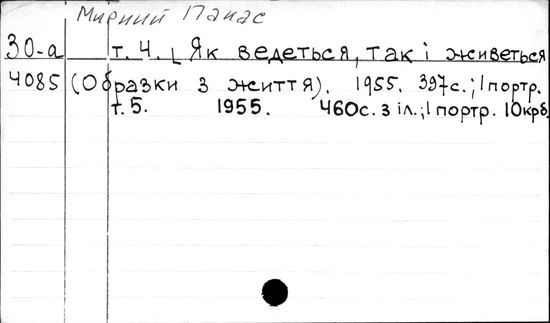 Мирний Панас
30-а т. 4. [ Як ведеться, так і живеться
4085 (Образки з життя). 1955. 397с.; 1 портр.
т. 5. 1955. 460с. з іл.; 1 портр. 10крб.